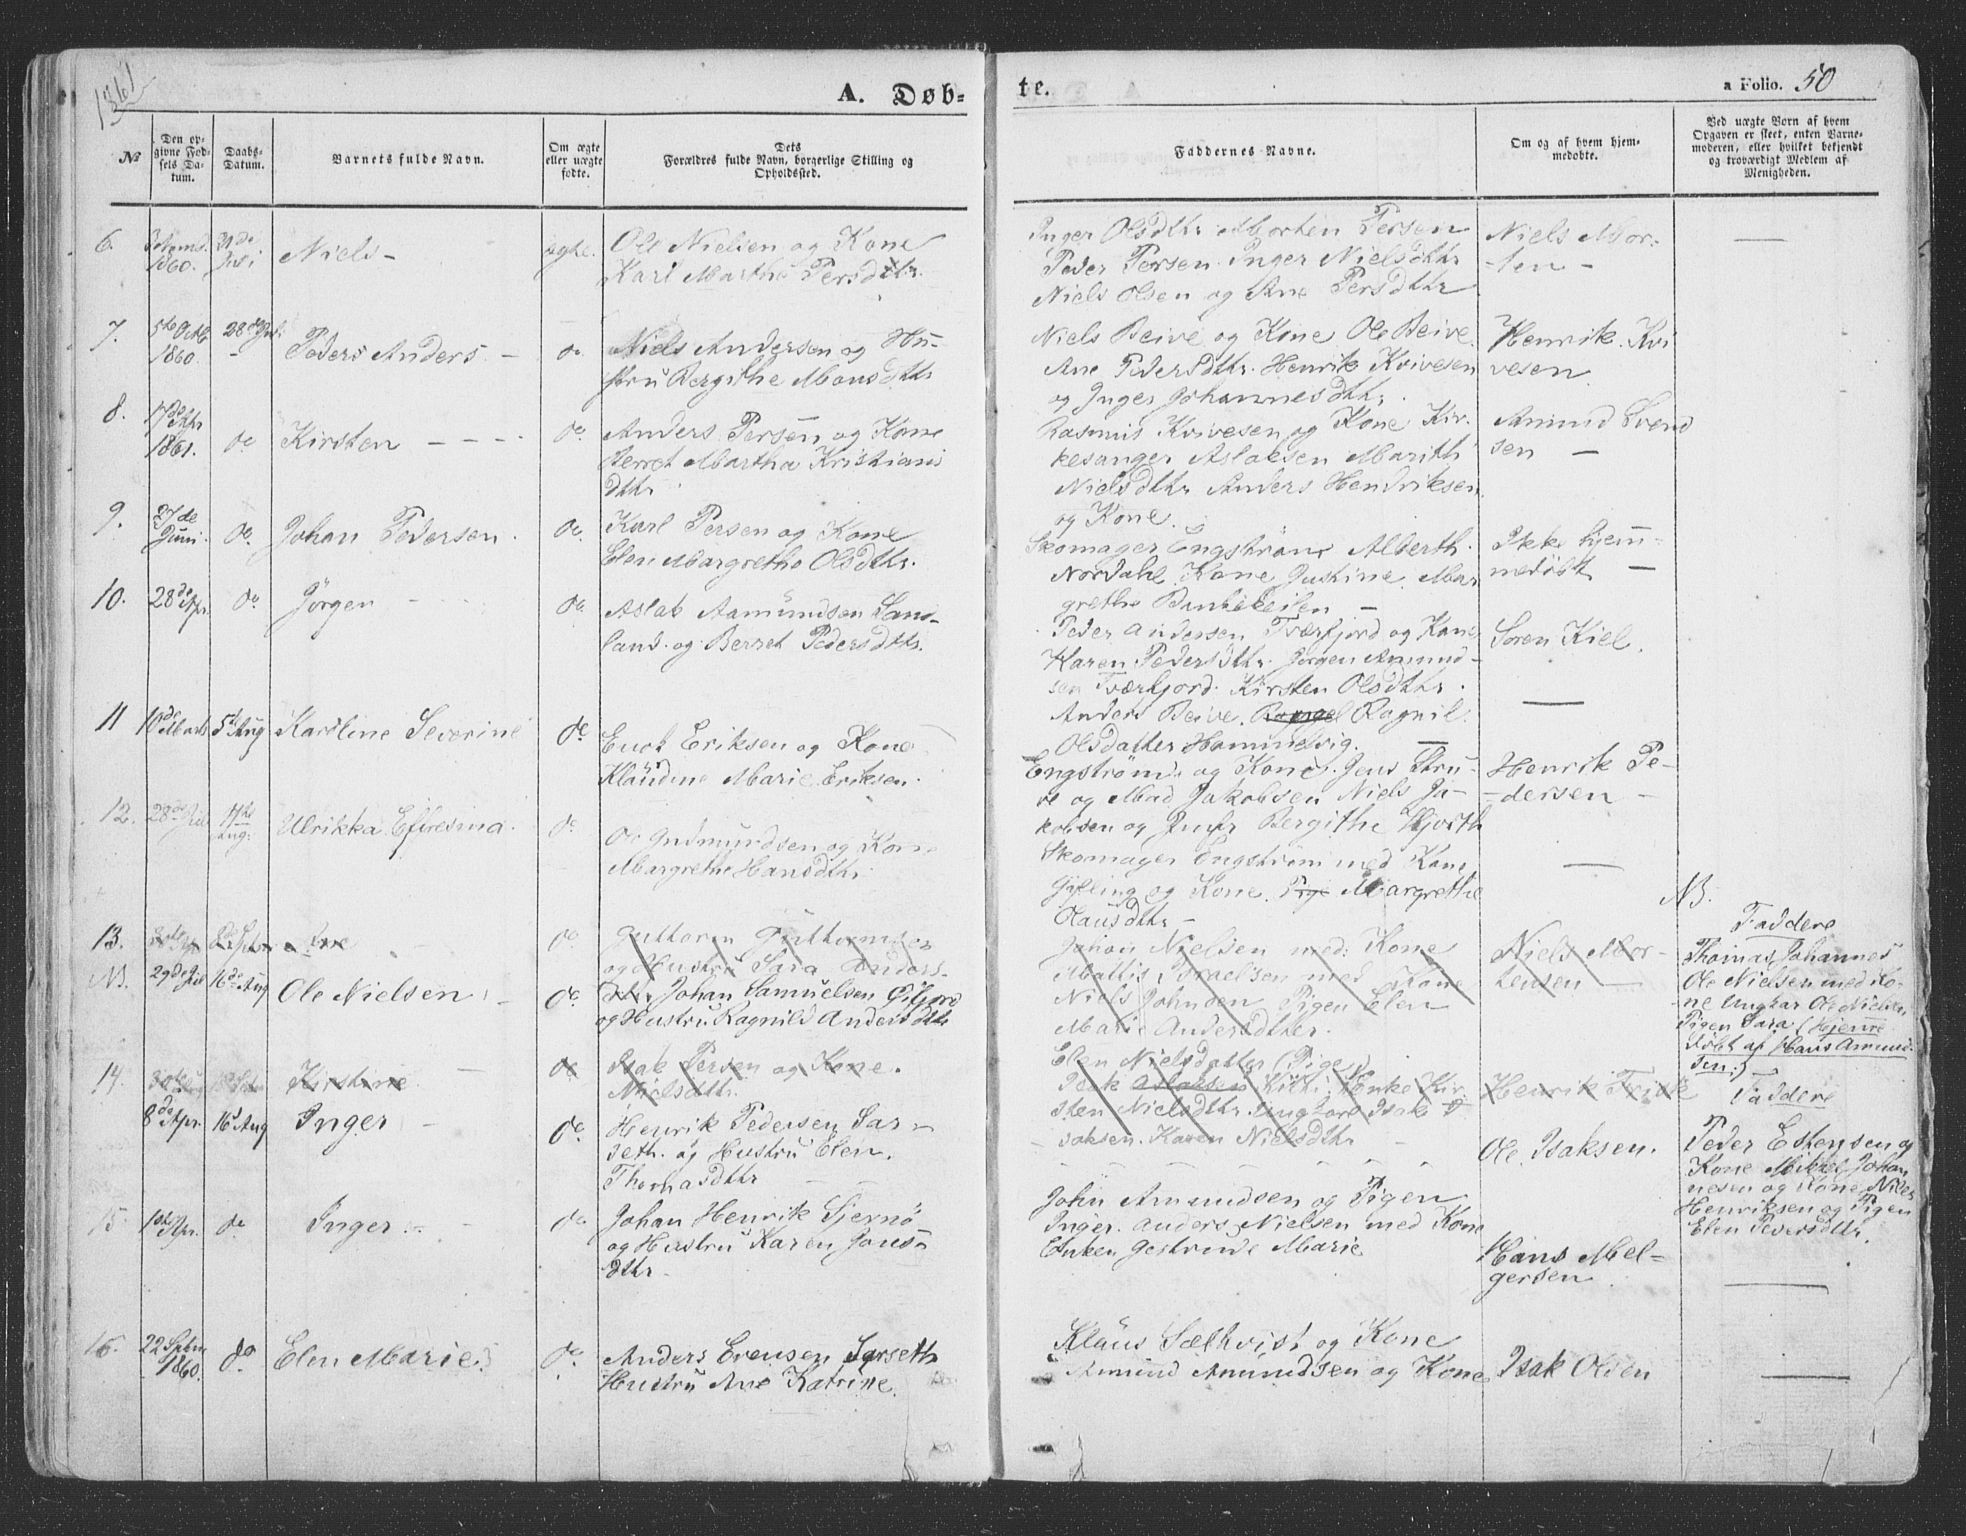 1861
A. Døb-
te.
a Folio. 50
№
Den op-
givne Fød-
sels Da-
tum.
Daabs-
Datum.
Barnets fulde Navn.
Om ægte
eller uægte
fødte.
Dets
Forældres fulde Navn, borgerlige Stilling og
Opholdssted.
Faddernes Navne.
Om og af hvem hjem-
medøbte.
Ved uægte Børn af hvem
Opgaven er skeet, enten Barne-
moderen, eller hvilket bekjendt
og troværdigt Medlem af
Menigheden.
6.
1860.
Niels -
ægte.
Ole Nielsen og Kone
Kari Marthe Persdttr.
Inger Olsdttr Morten Persen
Peder Persen. Inger Nielsdttr
Niels Olsen og Ane Persdttr
Niels Mor-
ten -
7.
5te Octb
1860.
28de Juli
Peders Anders -
do
Niels Andersen og Hu-
stru Bergithe Monsdttr
Niels Beive og Kone Ole Beive.
Ane Pedersdttr. Henrik Kvivesen
og Inger Johannesdttr.
Henrik Kvi
vesen
8.
17de
1861.
do
Kirsten - - - -
do
Anders Persen og Kone
Berret Martha Kristians
dttr
Rasmus Kvivesen og Kone Kir-
kesanger Aslaksen Marith
Nielsdttr Anders Hendriksen
og Kone.
Amund Svend
sen -
9.
27de
Juni
do
Johan Pedersen.
do
Karl Persen og Kone
Elen Margrethe Olsdttr.
Skomager Engstrøm Alberth
Nordahl Kone Justine Mar
grethe -
Ikke hjem-
medøbt -
10.
28de Apr.
do
Jørgen -
do
Aslak Aamundsen Sand-
land og Berret Pedersdttr.
Peder Andersen Tværfjord og Kone
Karen Pedersdttr. Jørgen Amund-
sen Tværfjord. Kirsten Olsdttr.
Anders Beive. Ragnil
Olsdatter Hammelvig.
Soren Kiel.
11
10de Marts
5te Aug
Karoline Severine
do
Enok Eriksen og Kone
Klaudine Marie Eriksen.
Engstrøm og Kone. Jens Stru-
ve og Mad Jakobsen Niels Ja-
kobsen og Jmfr Bergithe Hjorth
Henrik Pe-
-dersen -
12.
28de Juli
Aug:
Ulrikka
do
Gudmundsen og Kone
Margrethe Hansdttr
Skomager Engstrøm med Kone
og Kone. Margrethe
Olausdttr -
13.
do
Guttorm Guttormsen
og Hustru Sara Anders-
Johan Nielsen med Kone
Mattis Israelsen med Kone
Niels Johnsen Pigen Elen
Marie Andersdttr.
Niels Mor-
tensen -
NB.
29de Juli
16de Aug
Ole Nielsen -
do
Johan Samuelsen Øxfjord
og Hustru Ragnild Andersdttr
NB.
Faddere
Thomas Johannes
Ole Nielsen med Ko-
ne Ungkar Ole Nielsen
Pigen Sara (Hjemme
døbt af Hans Amund
sen) -
14.
Kirstine
do
Isak Persen og Kone.
Nielsdttr.
Elen Nielsdatter (Pige)
Enke Kir
sten Nielsdttr. Ungkarl Isak I
saksen. Karen Nielsdttr
Henrik Frisk
8de Apr.
16d Aug
Inger -
do
Henrik Pedersen Sar-
seth. og Hustru Elen.
Thomasdttr
Ole Isaksen.
Faddere
Peder Estensen og
Kone Mikkel Johan
nesen og Kone Niels
Henriksen og Pigen
Elen Pedersdttr.
15
1ste Apr.
do
Inger -
do
Johan Henrik Sjernø
og Hustru Karen Jons-
dttr.
John Amundsen og Pigen
Inger. Anders Nielsen med Kone
Enken Gestrude Marie
Hans Mel-
gersen
16.
22 Sptm
1860.
do
Elen Marie.
do
Anders Evensen Sarseth
Hustru Ane Katrine.
Klaus Sælkvist og Kone
Amund Amundsen og Kone
Isak Olsen